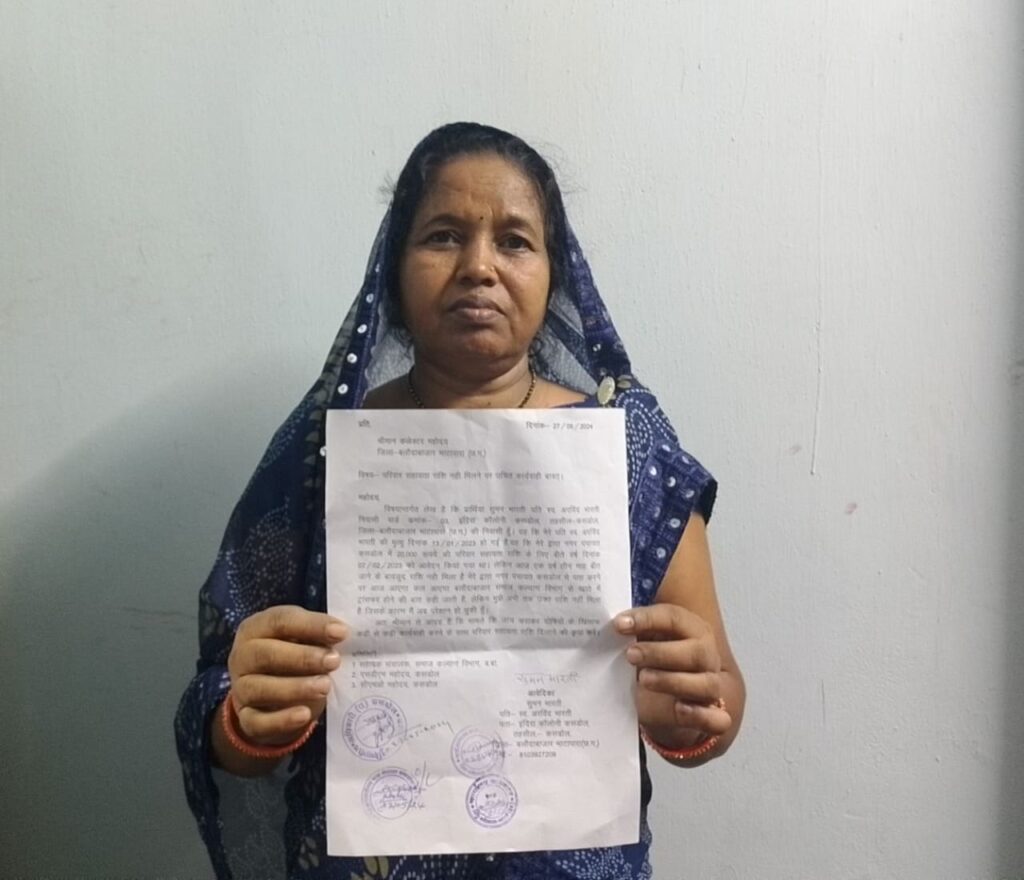 प्रति,
दिनांक– 27/05/2024
श्रीमान कलेक्टर महोदय
जिला–बलौदाबाजार भाटापारा (छ.ग.)
विषय– परिवार सहायता राशि नही मिलने पर उचित कार्यवाही बाबत्।
महोदय,
विषयान्तर्गत लेख है कि प्रार्थिया सुमन भारती पति स्व. अरविंद भारती
निवासी वार्ड क्रमांक– 03, इंदिरा कॉलोनी कसडोल, तहसील–कसडोल,
जिला–बलौदाबाजार भाटापारा (छ.ग.) की निवासी हूँ। यह कि मेरे पति स्व. अरविंद
भारती की मृत्यु दिनांक 13/01/2023 हो गई है यह कि मेरे द्वारा नगर पंचायत
कसडोल में 20,000 रूपये की परिवार सहायता राशि के लिए बीते वर्ष दिनांक
02/02/2023 को आवेदन किया गया था। लेकिन आज एक वर्ष तीन माह बीत
जाने के बावजुद राशि नही मिला है मेरे द्वारा नगर पंचायत कसडोल में पता करने
पर आज आएगा कल आएगा बलौदाबाजार समाज कल्याण विभाग से खाते में
ट्रांसफर होने की बात कही जाती है, लेकिन मुझे अभी तक उक्त राशि नही मिला
है जिसके कारण मैं अब परेशान हो चुकी हूँ।
अतः श्रीमान से आग्रह है कि मामले कि जांच कराकर दोषियों के खिलाफ
कड़ी से कड़ी कार्यवाही करने के साथ परिवार सहायता राशि दिलाने की कृपा करें।
प्रतिलिपि
1. सहायक संचालक, समाज कल्याण विभाग, ब.बा.
2. एसडीएम महोदय, कसडोल
3. सीएमओ महोदय, कसडोल
सुमन भारती
आवेदिका
सुमन भारती
पति– स्व. अरविंद भारती
पता– इंदिरा कॉलोनी कसडोल,
तहसील – कसडोल,
जिला– बलौदाबाजार भाटापारा(छ.ग.)